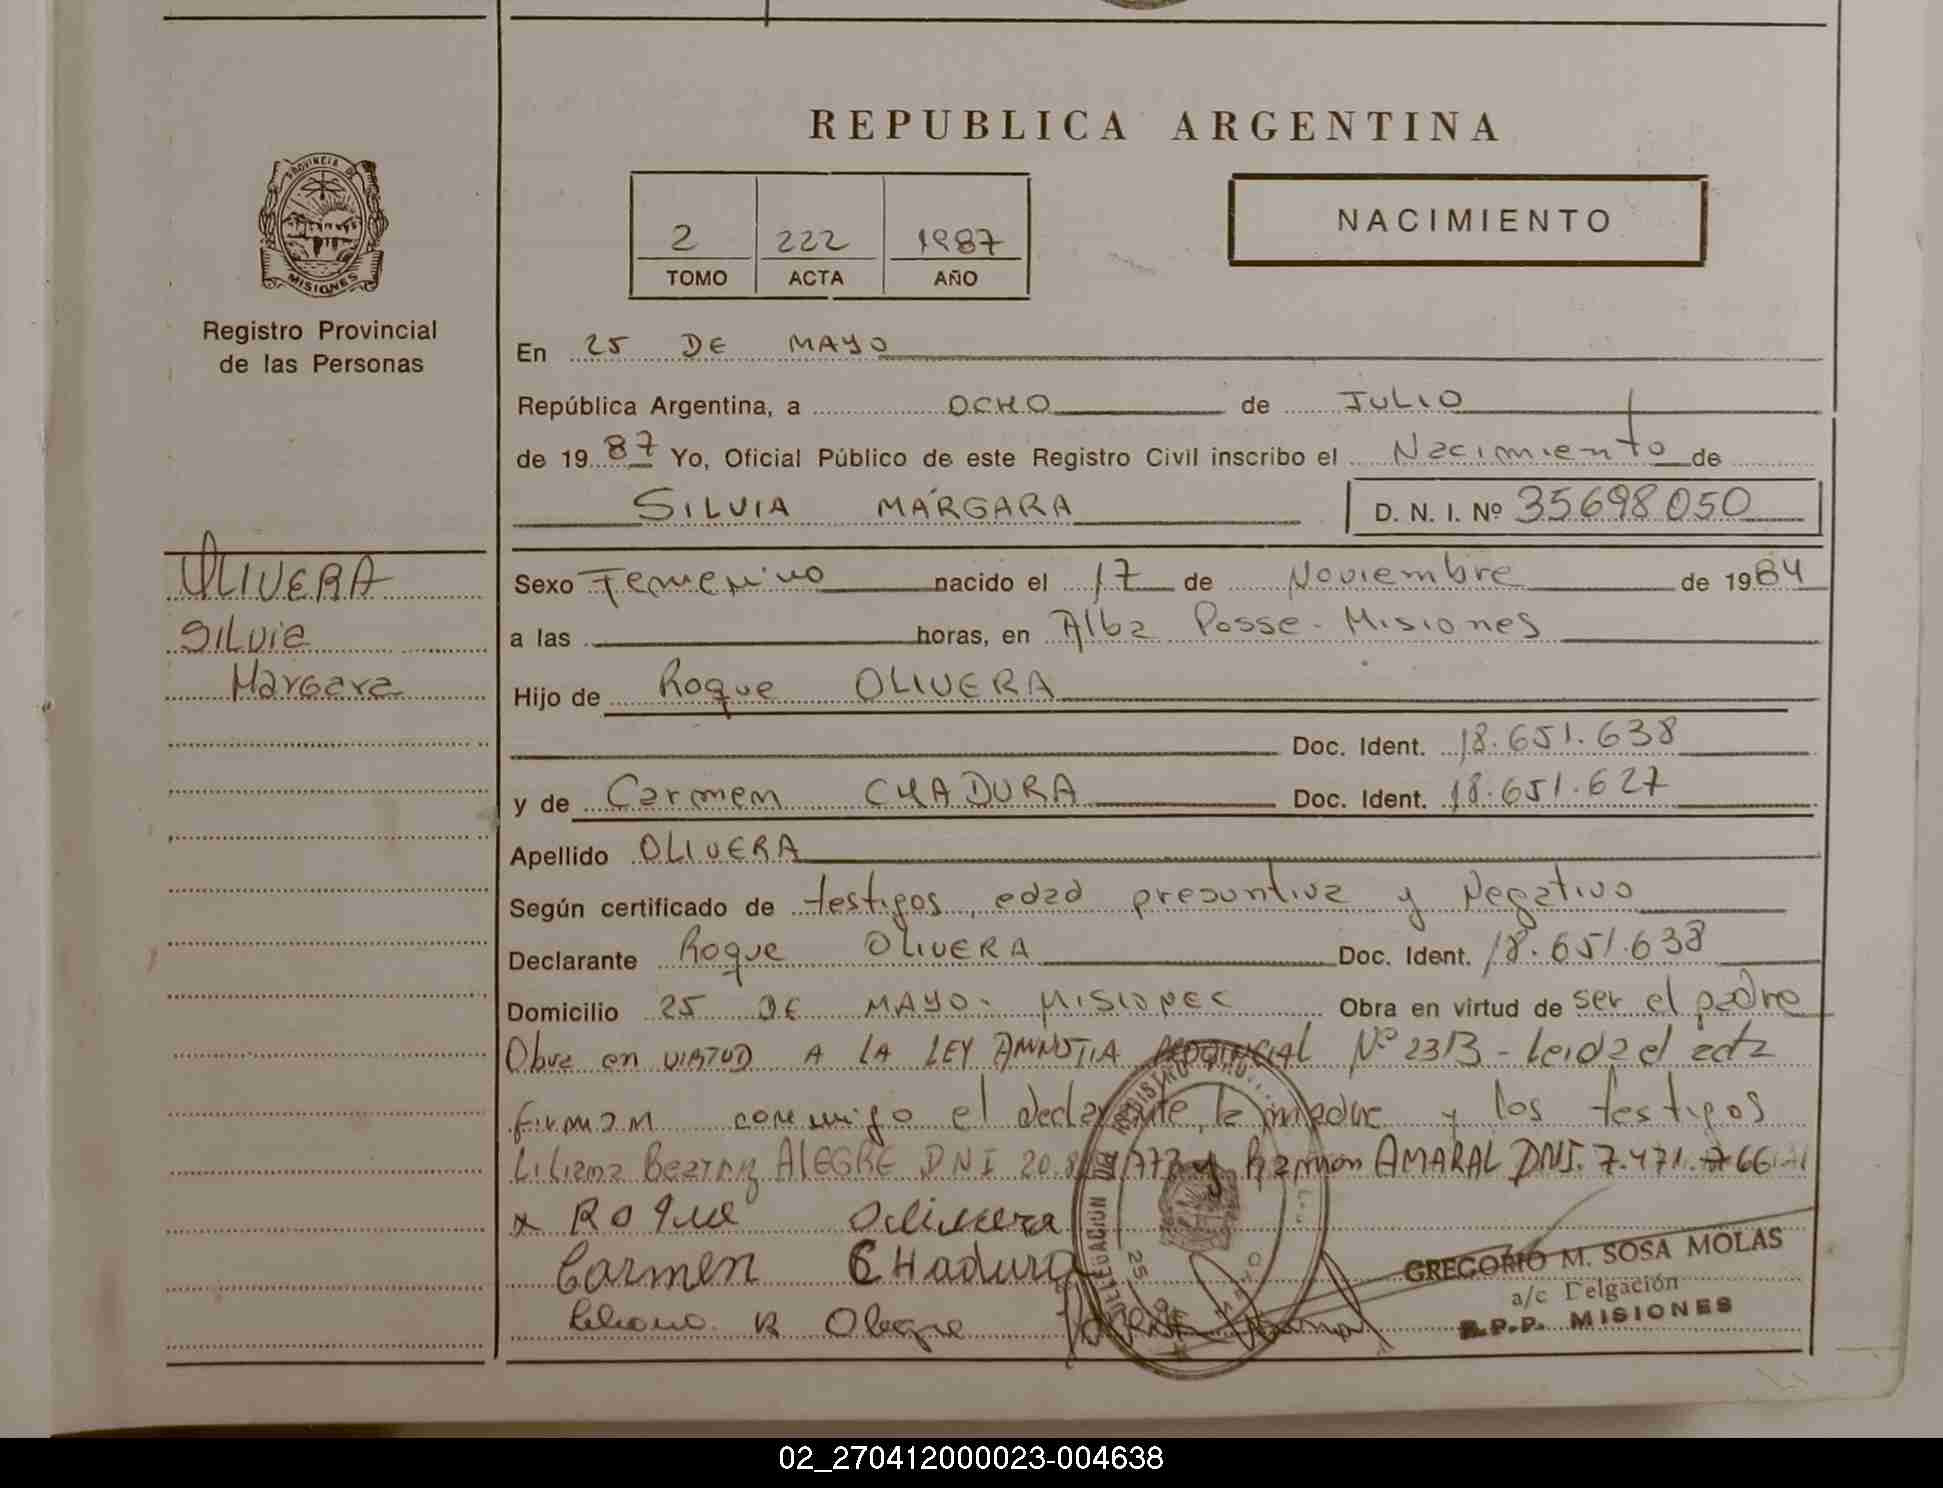 REPUBLICA ARGENTINA
PROVINCIA DE
MISIONES
Registro Provincial
de las Personas
2 222 1987
TOMO ACTA AÑO
NACIMIENTO
En 25 DE MAYO
República Argentina, a OCHO de JULIO
de 19 87 Yo, Oficial Público de este Registro Civil inscribo el Nacimiento de
SILVIA MÁRGARA D. N. I. Nº 35698050
OLIVERA
Silvia
Margara
Sexo Femenino nacido el 17 de Noviembre de 1984
a las horas, en Alba Posse - Misiones
Hijo de Roque OLIVERA
Doc. Ident. 18.651.638
y de Carmen CHADURA Doc. Ident. 18.651.627
Apellido OLIVERA
Según certificado de testigos, edad presuntiva y Negativo
Declarante Roque OLIVERA Doc. Ident. 18.651.638
Domicilio 25 DE MAYO - MISIONES Obra en virtud de ser el padre
Obra en VIRTUD A LA LEY AMNISTIA PROVINCIAL Nº 2313 - Leida el acta
firman conmigo el declarante, la madre y los testigos
Liliana Beatriz ALEGRE DNI 20.8 773 y Ramon AMARAL DNI. 7.471.766
x Roque Olivera
Carmen CHadura
Liliana B Alegre
DELEGACION DEL REGISTRO
25
GREGORIO M. SOSA MOLAS
a/c Delgación
R.P.P. MISIONES
02_270412000023-004638